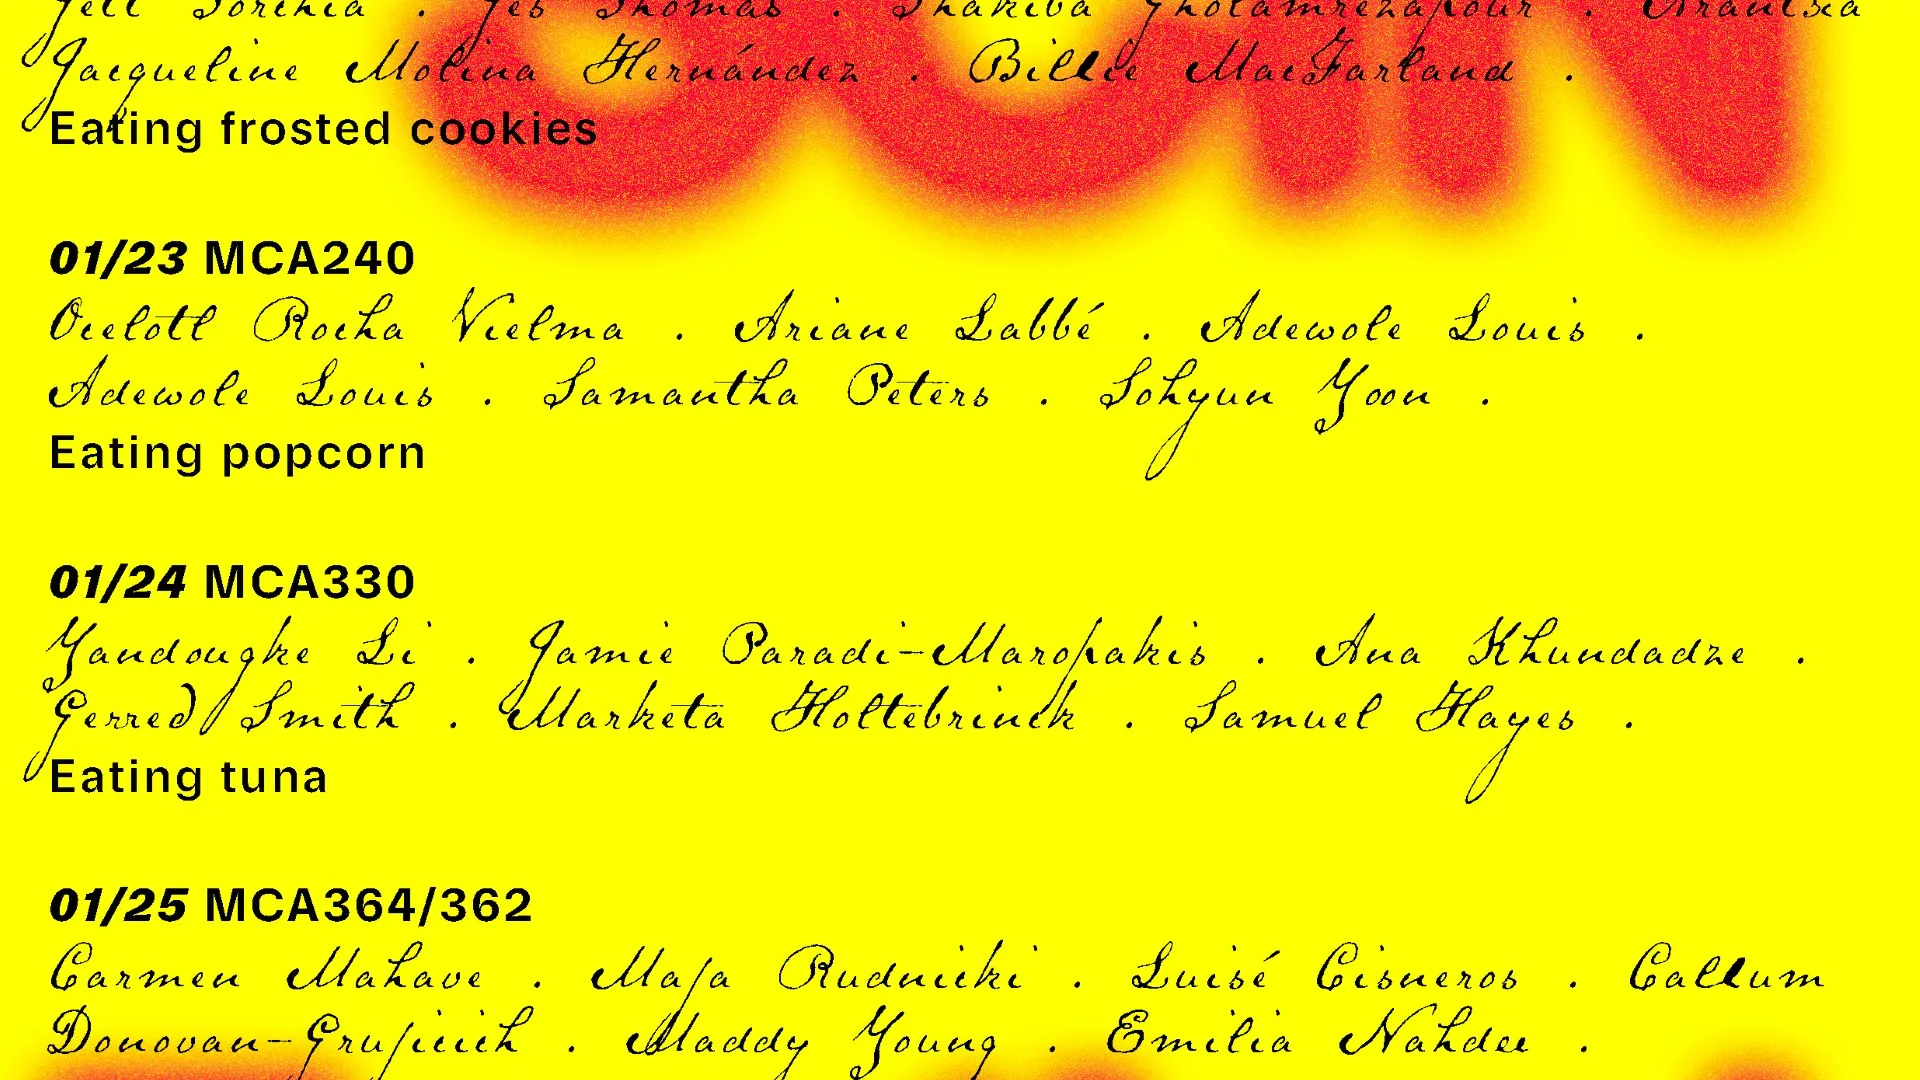 Yes Thomas . Shakiba Gholamrezapour . Arantxa
Jacqueline Molina Hernández . Billie MacFarland .
Eating frosted cookies
01/23 MCA240
Ocelotl Rocha Vielma . Ariane Labbé . Adewole Louis .
Adewole Louis . Samantha Peters . Sohyun Yoon .
Eating popcorn
01/24 MCA330
Yandougke Li . Jamie Paradi-Maropakis . Ana Khundadze .
Gerred Smith . Marketa Holtebrinck . Samuel Hayes .
Eating tuna
01/25 MCA364/362
Carmen Mahave . Maja Rudnicki . Luisé Cisneros . Callum
Donovan-Grujicich . Maddy Young . Emilia Nahdee .